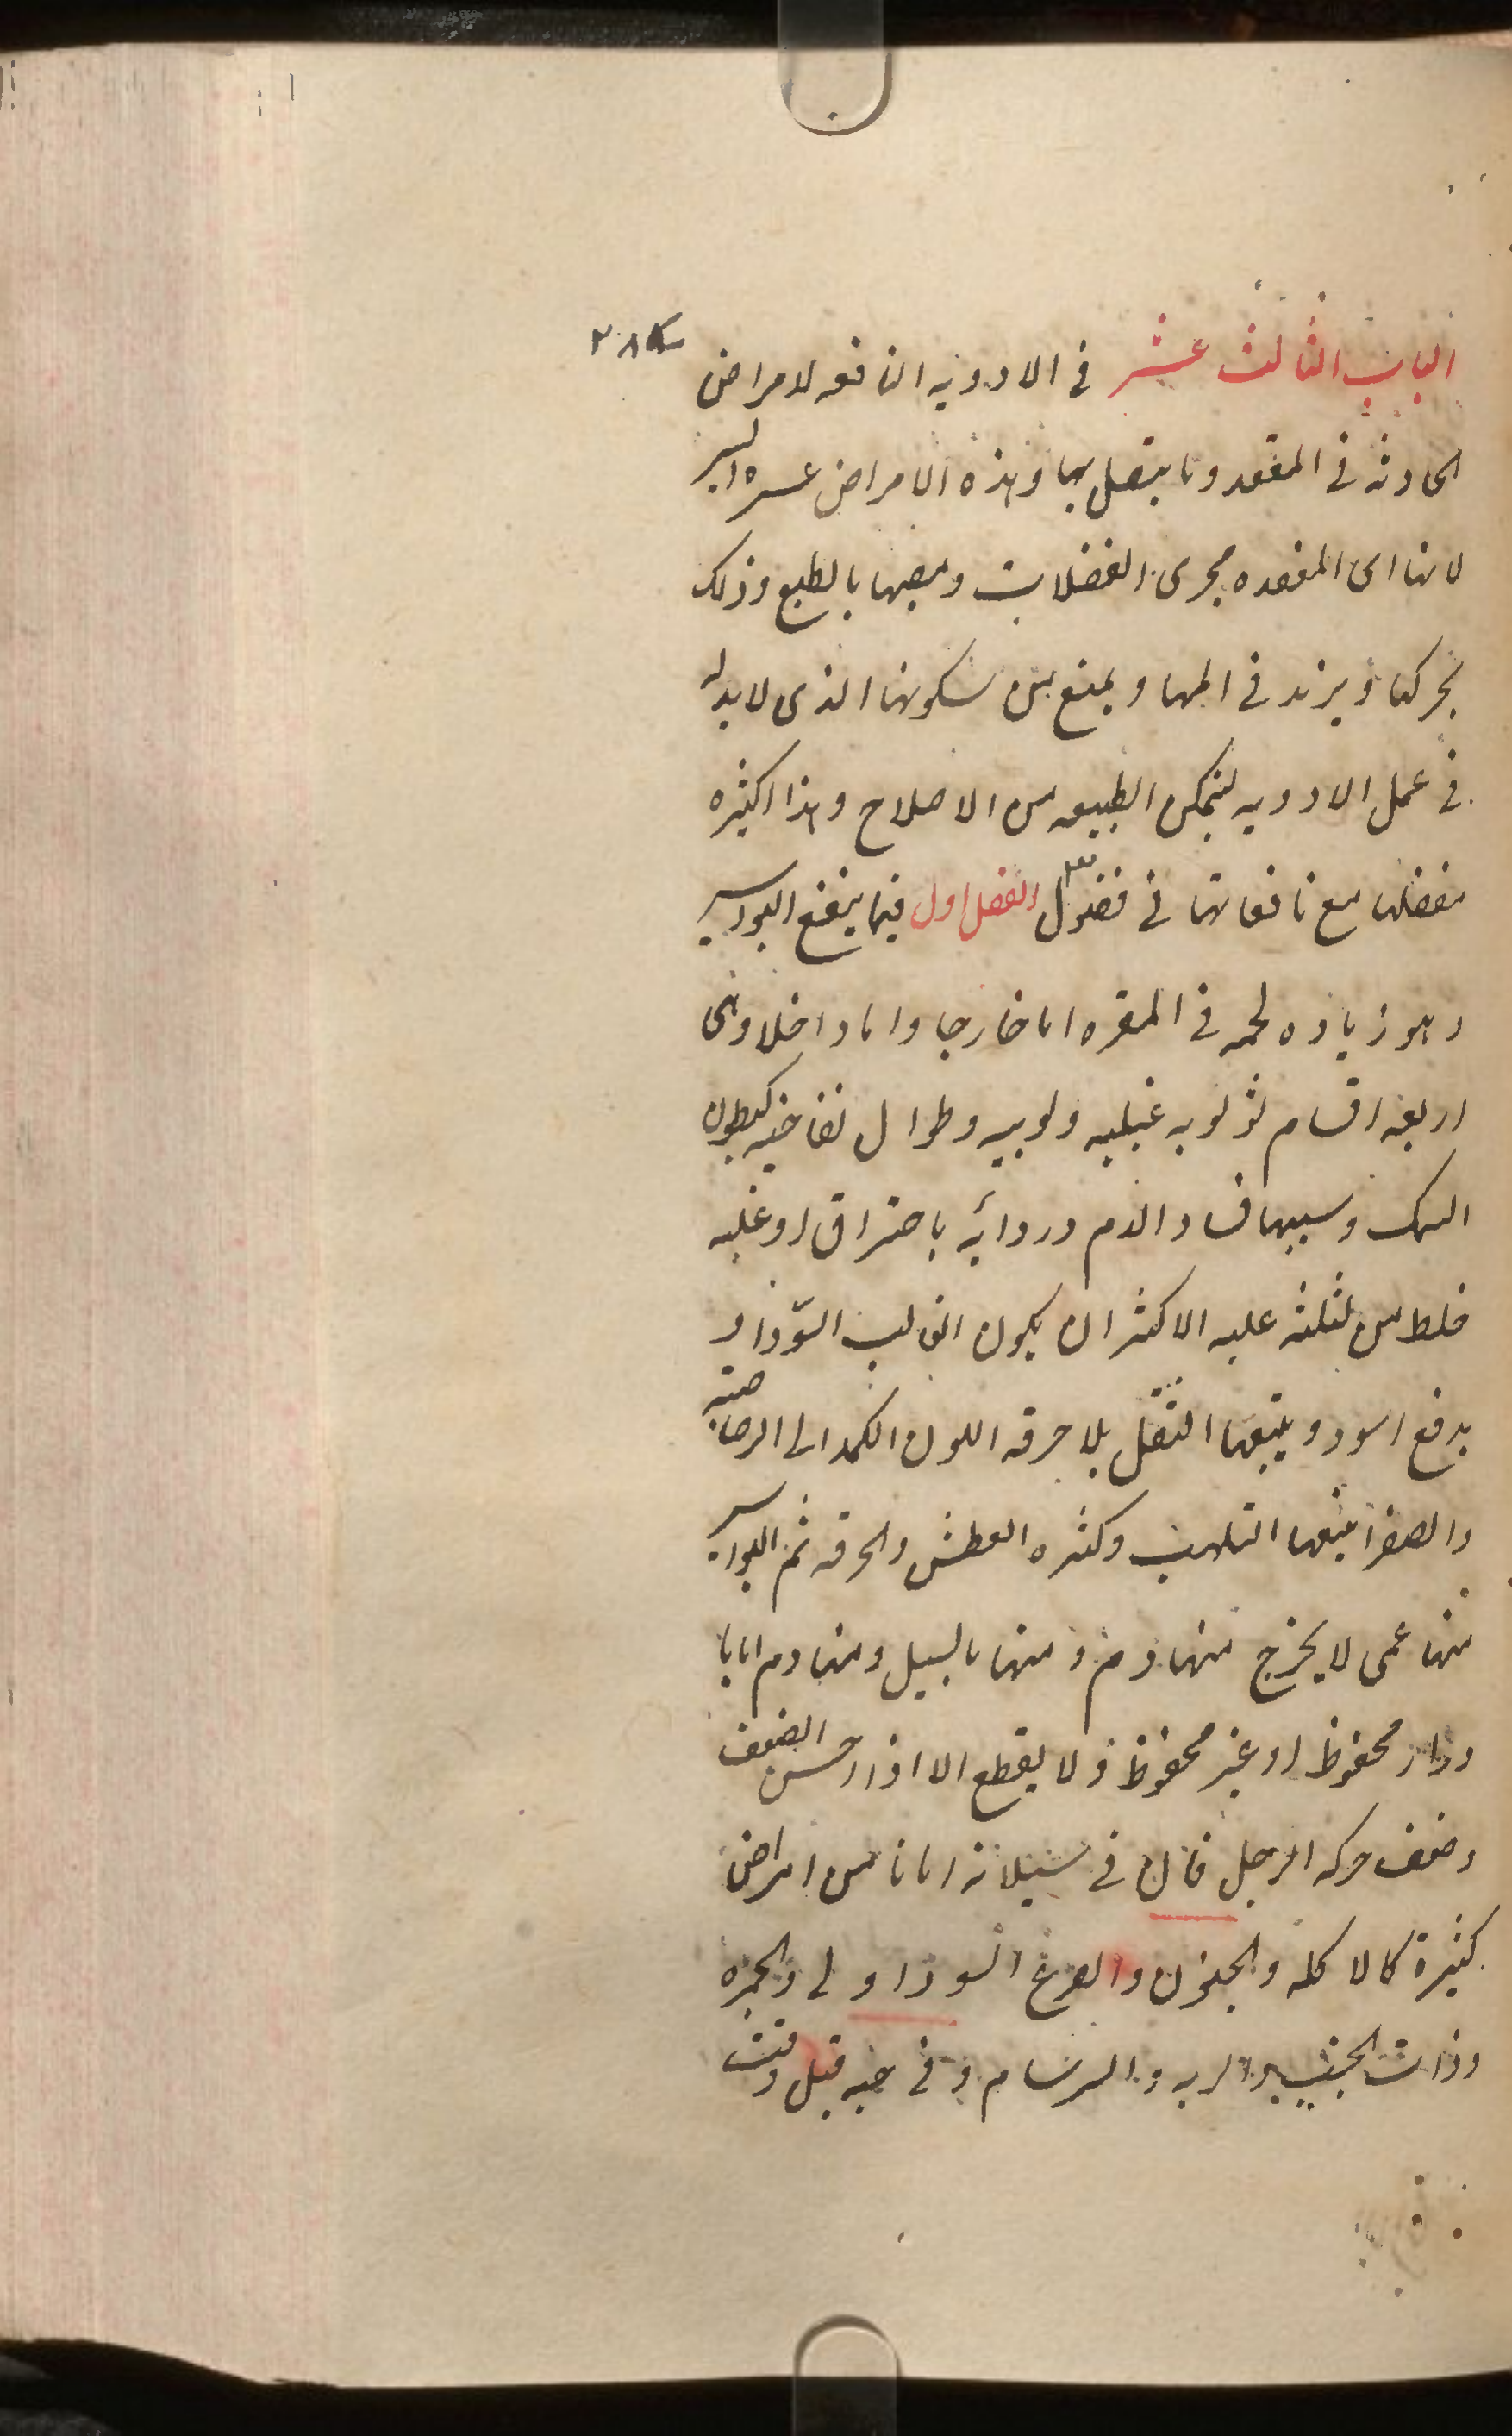 الباب الثالث عشر فى الادويه النافعه لامراض ٢٨٨
الحادثه فى المقعد وما يتصل بها وهذه الامراض عسره البر
لانها اى المقعده مجرى الفضلات ومصبها بالطبع وذلك
يحركها ويزيد فى المها ويمنع من سكونها الذى لا بد له
فى عمل الادويه لتمكن الطبيعه من الاصلاح وهذا اكثره
مفصلها مع نافعاتها فى فصول الفصل اول فيما ينفع البواسير
وهو زياده لحمه فى المقره اما خارجا واما داخلا وهى
اربعه اقسام ثؤلوليه عنبيه وتوتيه وطوال نفاخيه كبطون
السمك وسببها فساد الدم ورداته باحتراق او غلبه
خلط من ثلثه عليه الاكثر ان يكون الغالب السودا و
يدفع اسود ويتبعها الثقل بلا حرقه اللون الكمد الى الرصاصيه
والصفرا يتبعها التلهب وكثره العطش والحرقه ثم البواسير
منها عمى لا يخرج منها دم ومنها ما يسيل ومنها دم اما با
دوار محفوظ او غير محفوظ ولا يقطع الا اذا احسن الضعف
وضعف حركه الرجل فان فى سيلانه امانا من امراض
كثيرة كالاكله والجنون والصرع السوداوى والحمره
وذات الجنب والريه والسرسام وفى حبه قبل وقت